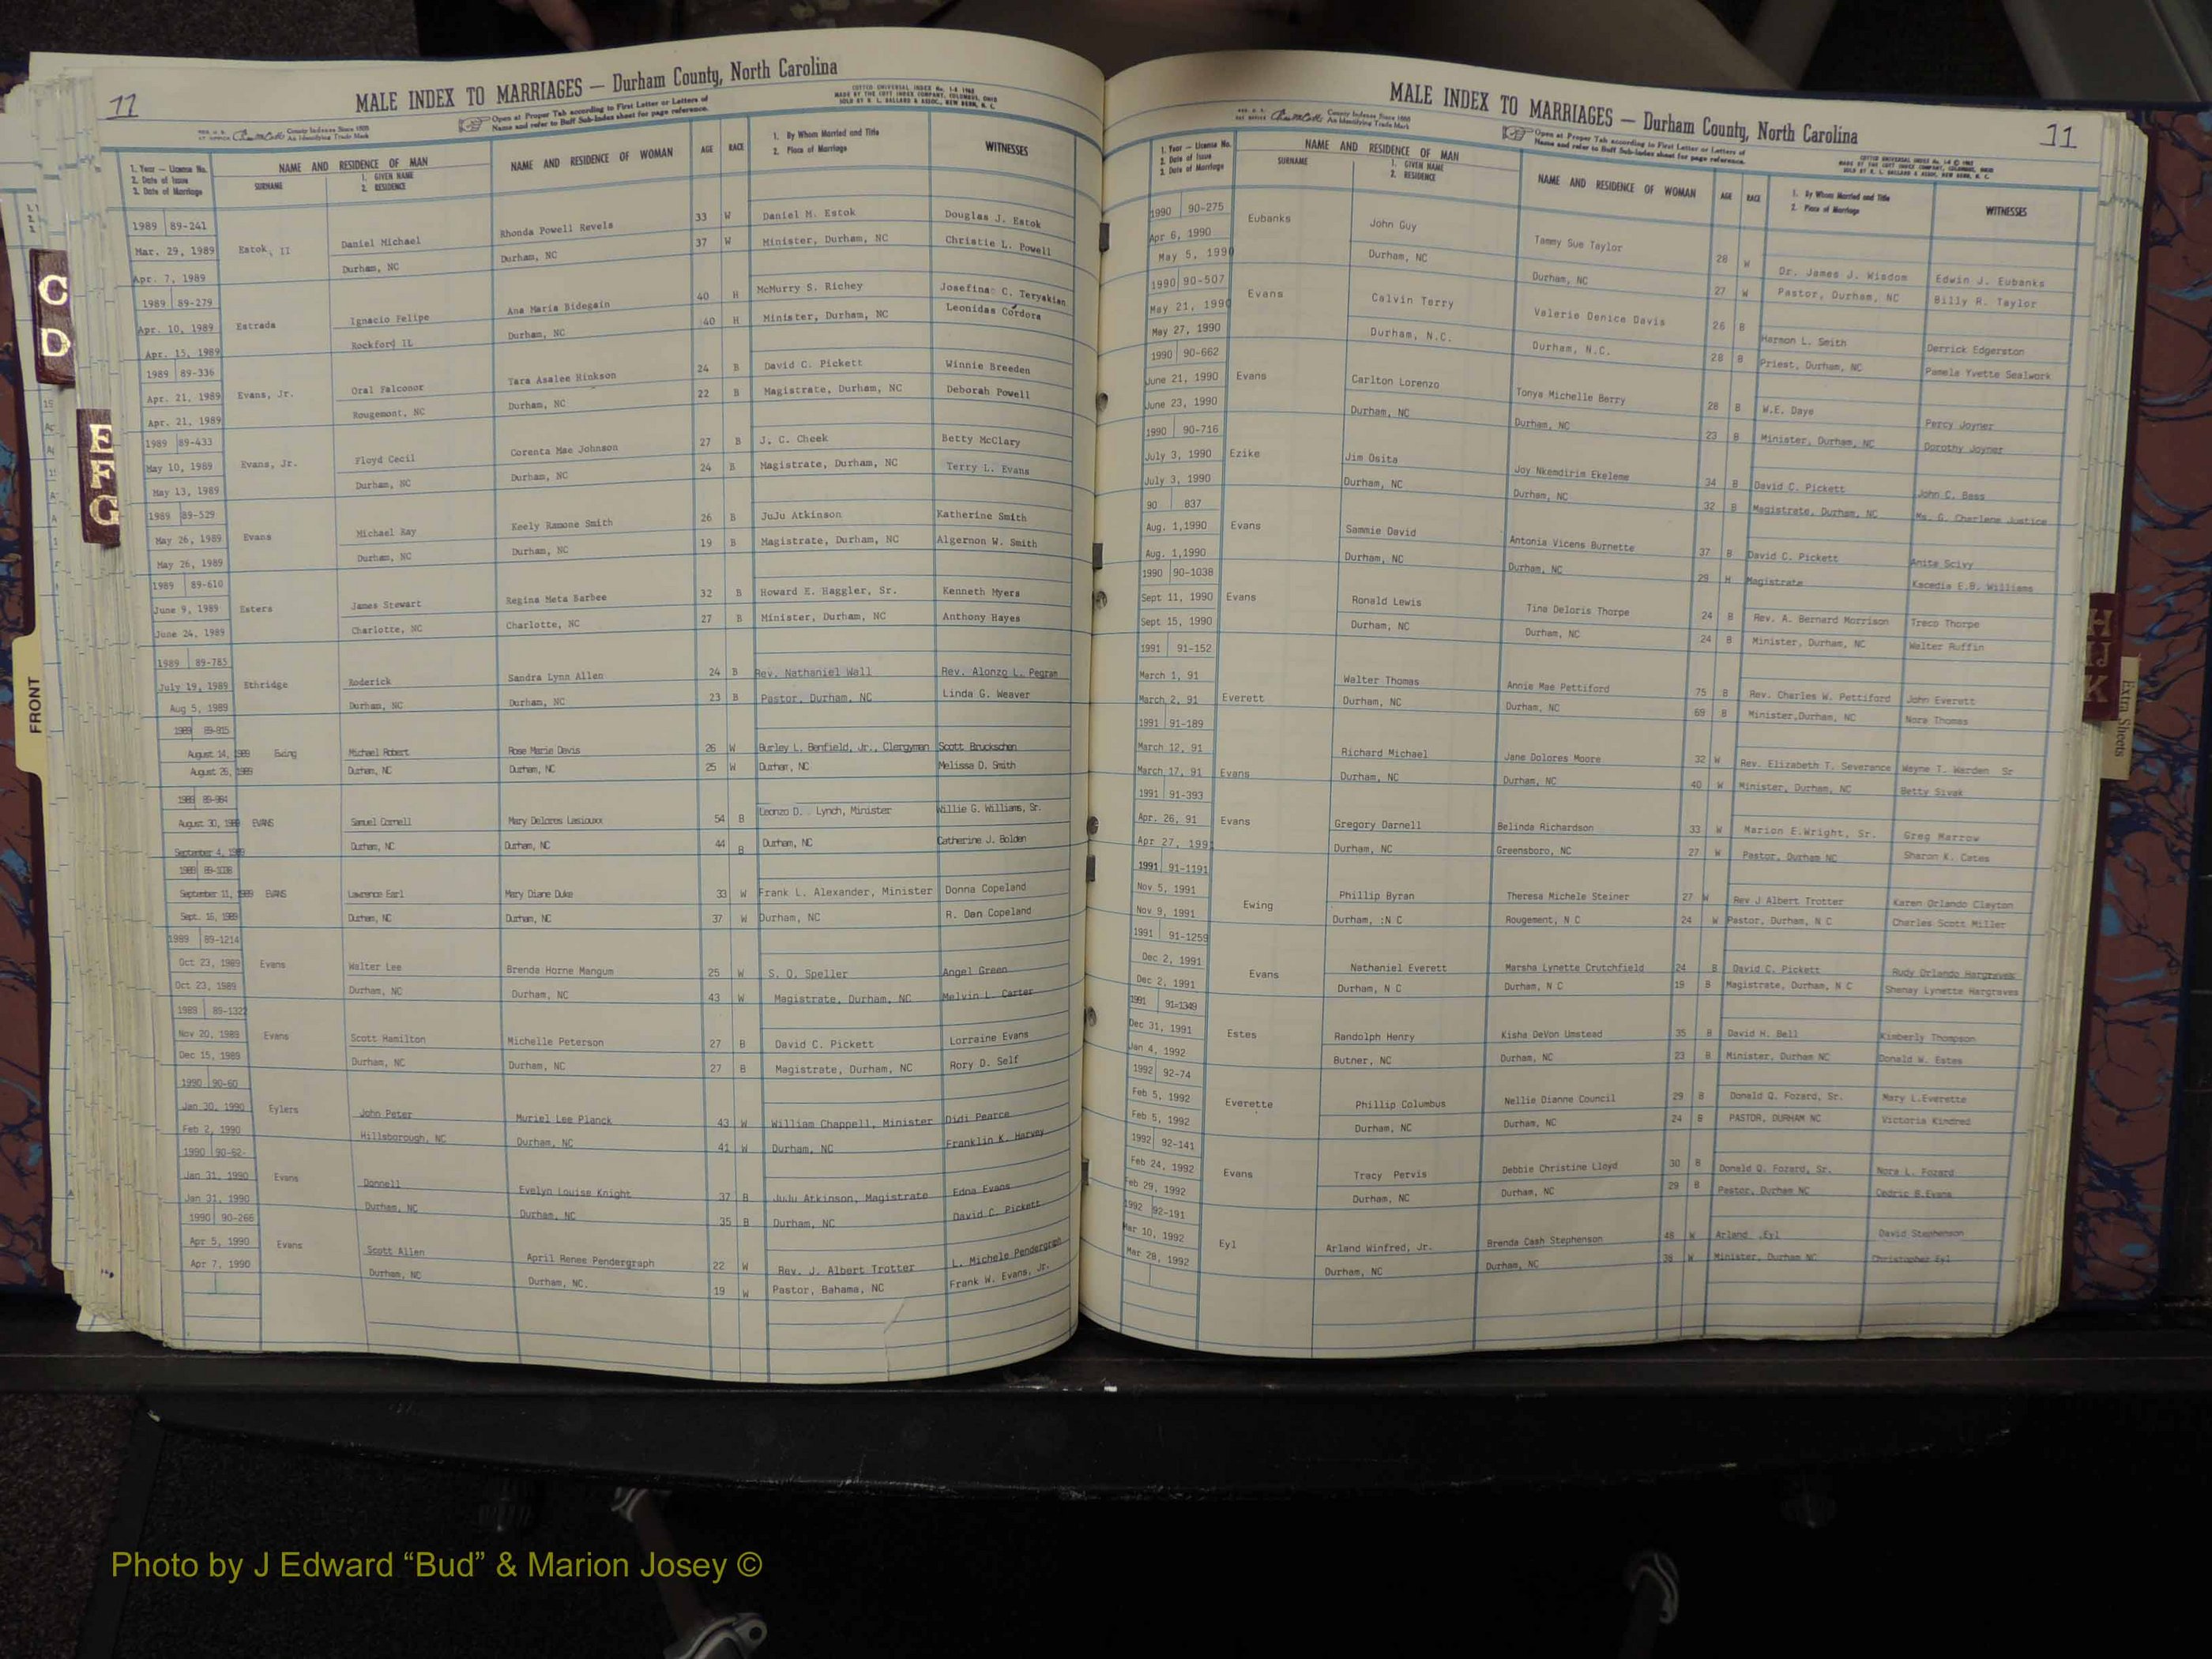 11
MALE INDEX TO MARRIAGES — Durham County, North Carolina
Open at Proper Tab according to First Letter or Letters of
Name and refer to Buff Sub-Index sheet for page reference.
COTTED UNIVERSAL INDEX No.
MADE BY THE COTT INDEX COMPANY, COLUMBUS, OHIO
SOLD BY R. L. BALLARD & ASSOC., NEW BERN, N. C.
County Indexes Since 1888
An Identifying Trade Mark
1. Year — License No.
2. Date of Issue
3. Date of Marriage
NAME AND RESIDENCE OF MAN
SURNAME
1. GIVEN NAME
2. RESIDENCE
NAME AND RESIDENCE OF WOMAN
AGE
RACE
1. By Whom Married and Title
2. Place of Marriage
WITNESSES
1989 89-241 Rhonda Powell Revels 33 W Daniel M. Estok Douglas J. Estok
Mar. 29, 1989 Estok, II Daniel Michael Durham, NC 37 W Minister, Durham, NC Christie L. Powell
Apr. 7, 1989 Durham, NC
1989 89-279 Ana Maria Bidegain 40 H McMurry S. Richey Josefina C. Teryakian
Apr. 10, 1989 Estrada Ignacio Felipe Durham, NC 40 H Minister, Durham, NC Leonidas Cordora
Apr. 15, 1989 Rockford IL
1989 89-336 Tara Asalee Hinkson 24 B David C. Pickett Winnie Breeden
Apr. 21, 1989 Evans, Jr. Oral Falconor Durham, NC 22 B Magistrate, Durham, NC Deborah Powell
Apr. 21, 1989 Rougemont, NC
1989 89-433 Corenta Mae Johnson 27 B J. C. Cheek Betty McClary
May 10, 1989 Evans, Jr. Floyd Cecil Durham, NC 24 B Magistrate, Durham, NC Terry L. Evans
May 13, 1989 Durham, NC
1989 89-529 Keely Ramone Smith 26 B JuJu Atkinson Katherine Smith
May 26, 1989 Evans Michael Ray Durham, NC 19 B Magistrate, Durham, NC Algernon W. Smith
May 26, 1989 Durham, NC
1989 89-610 Regina Meta Barbee 32 B Howard E. Haggler, Sr. Kenneth Myers
June 9, 1989 Esters James Stewart Charlotte, NC 27 B Minister, Durham, NC Anthony Hayes
June 24, 1989 Charlotte, NC
1989 89-785 Sandra Lynn Allen 24 B Rev. Nathaniel Wall Rev. Alonzo L. Pegram
July 19, 1989 Ethridge Roderick Durham, NC 23 B Pastor, Durham, NC Linda G. Weaver
Aug 5, 1989 Durham, NC
1989 89-915
August 14, 1989 Ewing Michael Robert Rose Marie Davis 26 W Burley L. Benfield, Jr., Clergyman Scott Bruckschen
August 26, 1989 Durham, NC Durham, NC 25 W Durham, NC Melissa D. Smith
1989 89-984
August 30, 1989 EVANS Samuel Cornell Mary Delores Lasiouxx 54 B Leonzo D. Lynch, Minister Willie G. Williams, Sr.
September 4, 1989 Durham, NC Durham, NC 44 B Durham, NC Catherine J. Bolden
1989 89-1038
September 11, 1989 EVANS Lawrence Earl Mary Diane Duke 33 W Frank L. Alexander, Minister Donna Copeland
Sept. 16, 1989 Durham, NC Durham, NC 37 W Durham, NC R. Dan Copeland
1989 89-1214
Oct 23, 1989 Evans Walter Lee Brenda Horne Mangum 25 W S. O. Speller Angel Green
Oct 23, 1989 Durham, NC Durham, NC 43 W Magistrate, Durham, NC Melvin L. Carter
1989 89-1322
Nov 20, 1989 Evans Scott Hamilton Michelle Peterson 27 B David C. Pickett Lorraine Evans
Dec 15, 1989 Durham, NC Durham, NC 27 B Magistrate, Durham, NC Rory D. Self
1990 90-60
Jan 30, 1990 Eylers John Peter Muriel Lee Planck 43 W William Chappell, Minister Didi Pearce
Feb 2, 1990 Hillsborough, NC Durham, NC 41 W Durham, NC Franklin K. Harvey
1990 90-62
Jan 31, 1990 Evans Donnell Evelyn Louise Knight 37 B JuJu Atkinson, Magistrate Edna Evans
Jan 31, 1990 Durham, NC Durham, NC 35 B Durham, NC David C. Pickett
1990 90-266
Apr 5, 1990 Evans Scott Allen April Renee Pendergraph 22 W Rev. J. Albert Trotter L. Michele Pendergraph
Apr 7, 1990 Durham, NC Durham, NC. 19 W Pastor, Bahama, NC Frank W. Evans, Jr.
MALE INDEX TO MARRIAGES — Durham County, North Carolina
11
County Indexes Since 1888
An Identifying Trade Mark
Open at Proper Tab according to First Letter or Letters of
Name and refer to Buff Sub-Index sheet for page reference.
1. Year — License No.
2. Date of Issue
3. Date of Marriage
NAME AND RESIDENCE OF MAN
SURNAME
1. GIVEN NAME
2. RESIDENCE
NAME AND RESIDENCE OF WOMAN
AGE
RACE
1. By Whom Married and Title
2. Place of Marriage
WITNESSES
1990 90-275 Eubanks John Guy Tammy Sue Taylor 28 W Dr. James J. Wisdom Edwin J. Eubanks
Apr 6, 1990 Durham, NC Durham, NC 27 W Pastor, Durham, NC Billy R. Taylor
May 5, 1990
1990 90-507 Evans Calvin Terry Valerie Denice Davis 26 B Harmon L. Smith Derrick Edgerston
May 21, 1990 Durham, N.C. Durham, N.C. 28 B Priest, Durham, NC Pamela Yvette Sealwork
May 27, 1990
1990 90-662
June 21, 1990 Evans Carlton Lorenzo Tonya Michelle Berry 28 B W.E. Daye Percy Joyner
June 23, 1990 Durham, NC Durham, NC 23 B Minister, Durham, NC Dorothy Joyner
1990 90-716
July 3, 1990 Ezike Jim Osita Joy Nkemdirim Ekeleme 34 B David C. Pickett John C. Bass
July 3, 1990 Durham, NC Durham, NC 32 B Magistrate, Durham, NC Ms. G. Charlene Justice
90 837
Aug. 1,1990 Evans Sammie David Antonia Vicens Burnette 37 B David C. Pickett Anita Scivy
Aug. 1,1990 Durham, NC Durham, NC 29 H Magistrate Kacedia E.B. Williams
1990 90-1038
Sept 11, 1990 Evans Ronald Lewis Tina Deloris Thorpe 24 B Rev. A. Bernard Morrison Treco Thorpe
Sept 15, 1990 Durham, NC Durham, NC 24 B Minister, Durham, NC Walter Ruffin
1991 91-152
March 1, 91 Walter Thomas Annie Mae Pettiford 75 B Rev. Charles W. Pettiford John Everett
March 2, 91 Everett Durham, NC Durham, NC 69 B Minister,Durham, NC Nora Thomas
1991 91-189
March 12, 91 Richard Michael Jane Dolores Moore 32 W Rev. Elizabeth T. Severance Wayne T. Warden Sr
March 17, 91 Evans Durham, NC Durham, NC 40 W Minister, Durham, NC Betty Sivak
1991 91-393
Apr. 26, 91 Evans Gregory Darnell Belinda Richardson 33 W Marion E.Wright, Sr. Greg Marrow
Apr 27, 199 Durham, NC Greensboro, NC 27 W Pastor, Durham NC Sharon K. Cates
1991 91-1191
Nov 5, 1991 Phillip Byran Theresa Michele Steiner 27 W Rev J Albert Trotter Karen Orlando Clayton
Nov 9, 1991 Ewing Durham, :N C Rougement, N C 24 W Pastor, Durham, N C Charles Scott Miller
1991 91-1259
Dec 2, 1991 Evans Nathaniel Everett Marsha Lynette Crutchfield 24 B David C. Pickett Rudy Orlando Hargraves
Dec 2, 1991 Durham, N C Durham, N C 19 B Magistrate, Durham, N C Shenay Lynette Hargraves
1991 91=1349
Dec 31, 1991 Estes Randolph Henry Kisha DeVon Umstead 35 B David H. Bell Kimberly Thompson
Jan 4, 1992 Butner, NC Durham, NC 23 B Minister, Durham NC Donald W. Estes
1992 92-74
Feb 5, 1992 Everette Phillip Columbus Nellie Dianne Council 29 B Donald Q. Fozard, Sr. Mary L.Everette
Feb 5, 1992 Durham, NC Durham, NC 24 B PASTOR, DURHAM NC Victoria Kindred
1992 92-141
Feb 24, 1992 Evans Tracy Pervis Debbie Christine Lloyd 30 B Donald Q. Fozard, Sr. Nora L. Fozard
Feb 29, 1992 Durham, NC Durham, NC 29 B Pastor, Durham NC Cedric B.Evans
1992 92-191
Mar 10, 1992 Eyl Arland Winfred, Jr. Brenda Cash Stephenson 48 W Arland Eyl David Stephenson
Mar 28, 1992 Durham, NC Durham, NC 36 W Minister, Durham NC Christopher Eyl
C
D
E
F
G
FRONT
H
IJ
K
Extra Sheets
Photo by J Edward “Bud” & Marion Josey ©